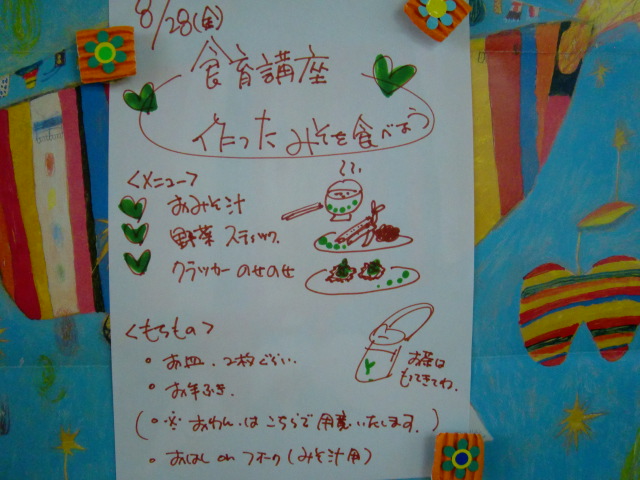 8/28(金)
食育講座
作ったみそを食べよう
<メニュー>
おみそ汁
野菜スティック
クラッカーのせのせ
<もちもの>
・お皿.2枚ぐらい.
・お手ふき.
(・※おわん.はこちらで用意いたします.)
・おはし or フォーク(みそ汁用)
お茶は
もってきてね.